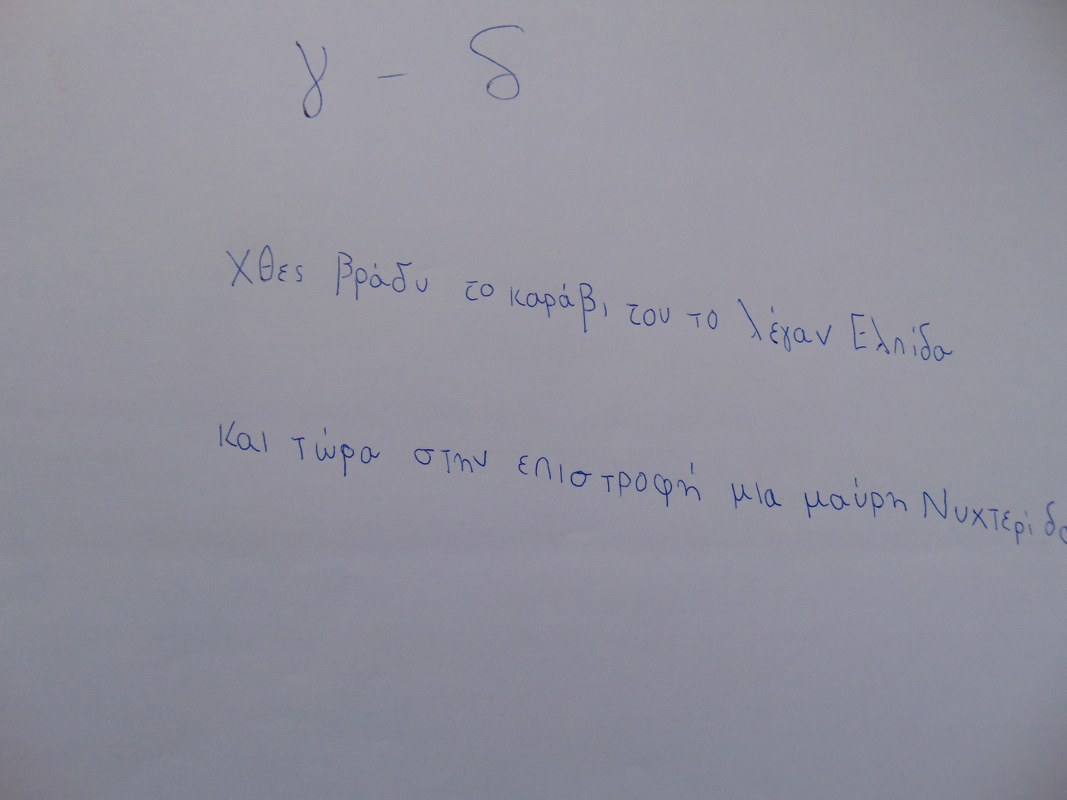 γ - δ
Χθες βράδυ το καράβι του το λέγαν Ελπίδα
Και τώρα στην επιστροφή μια μαύρη Νυχτερίδα